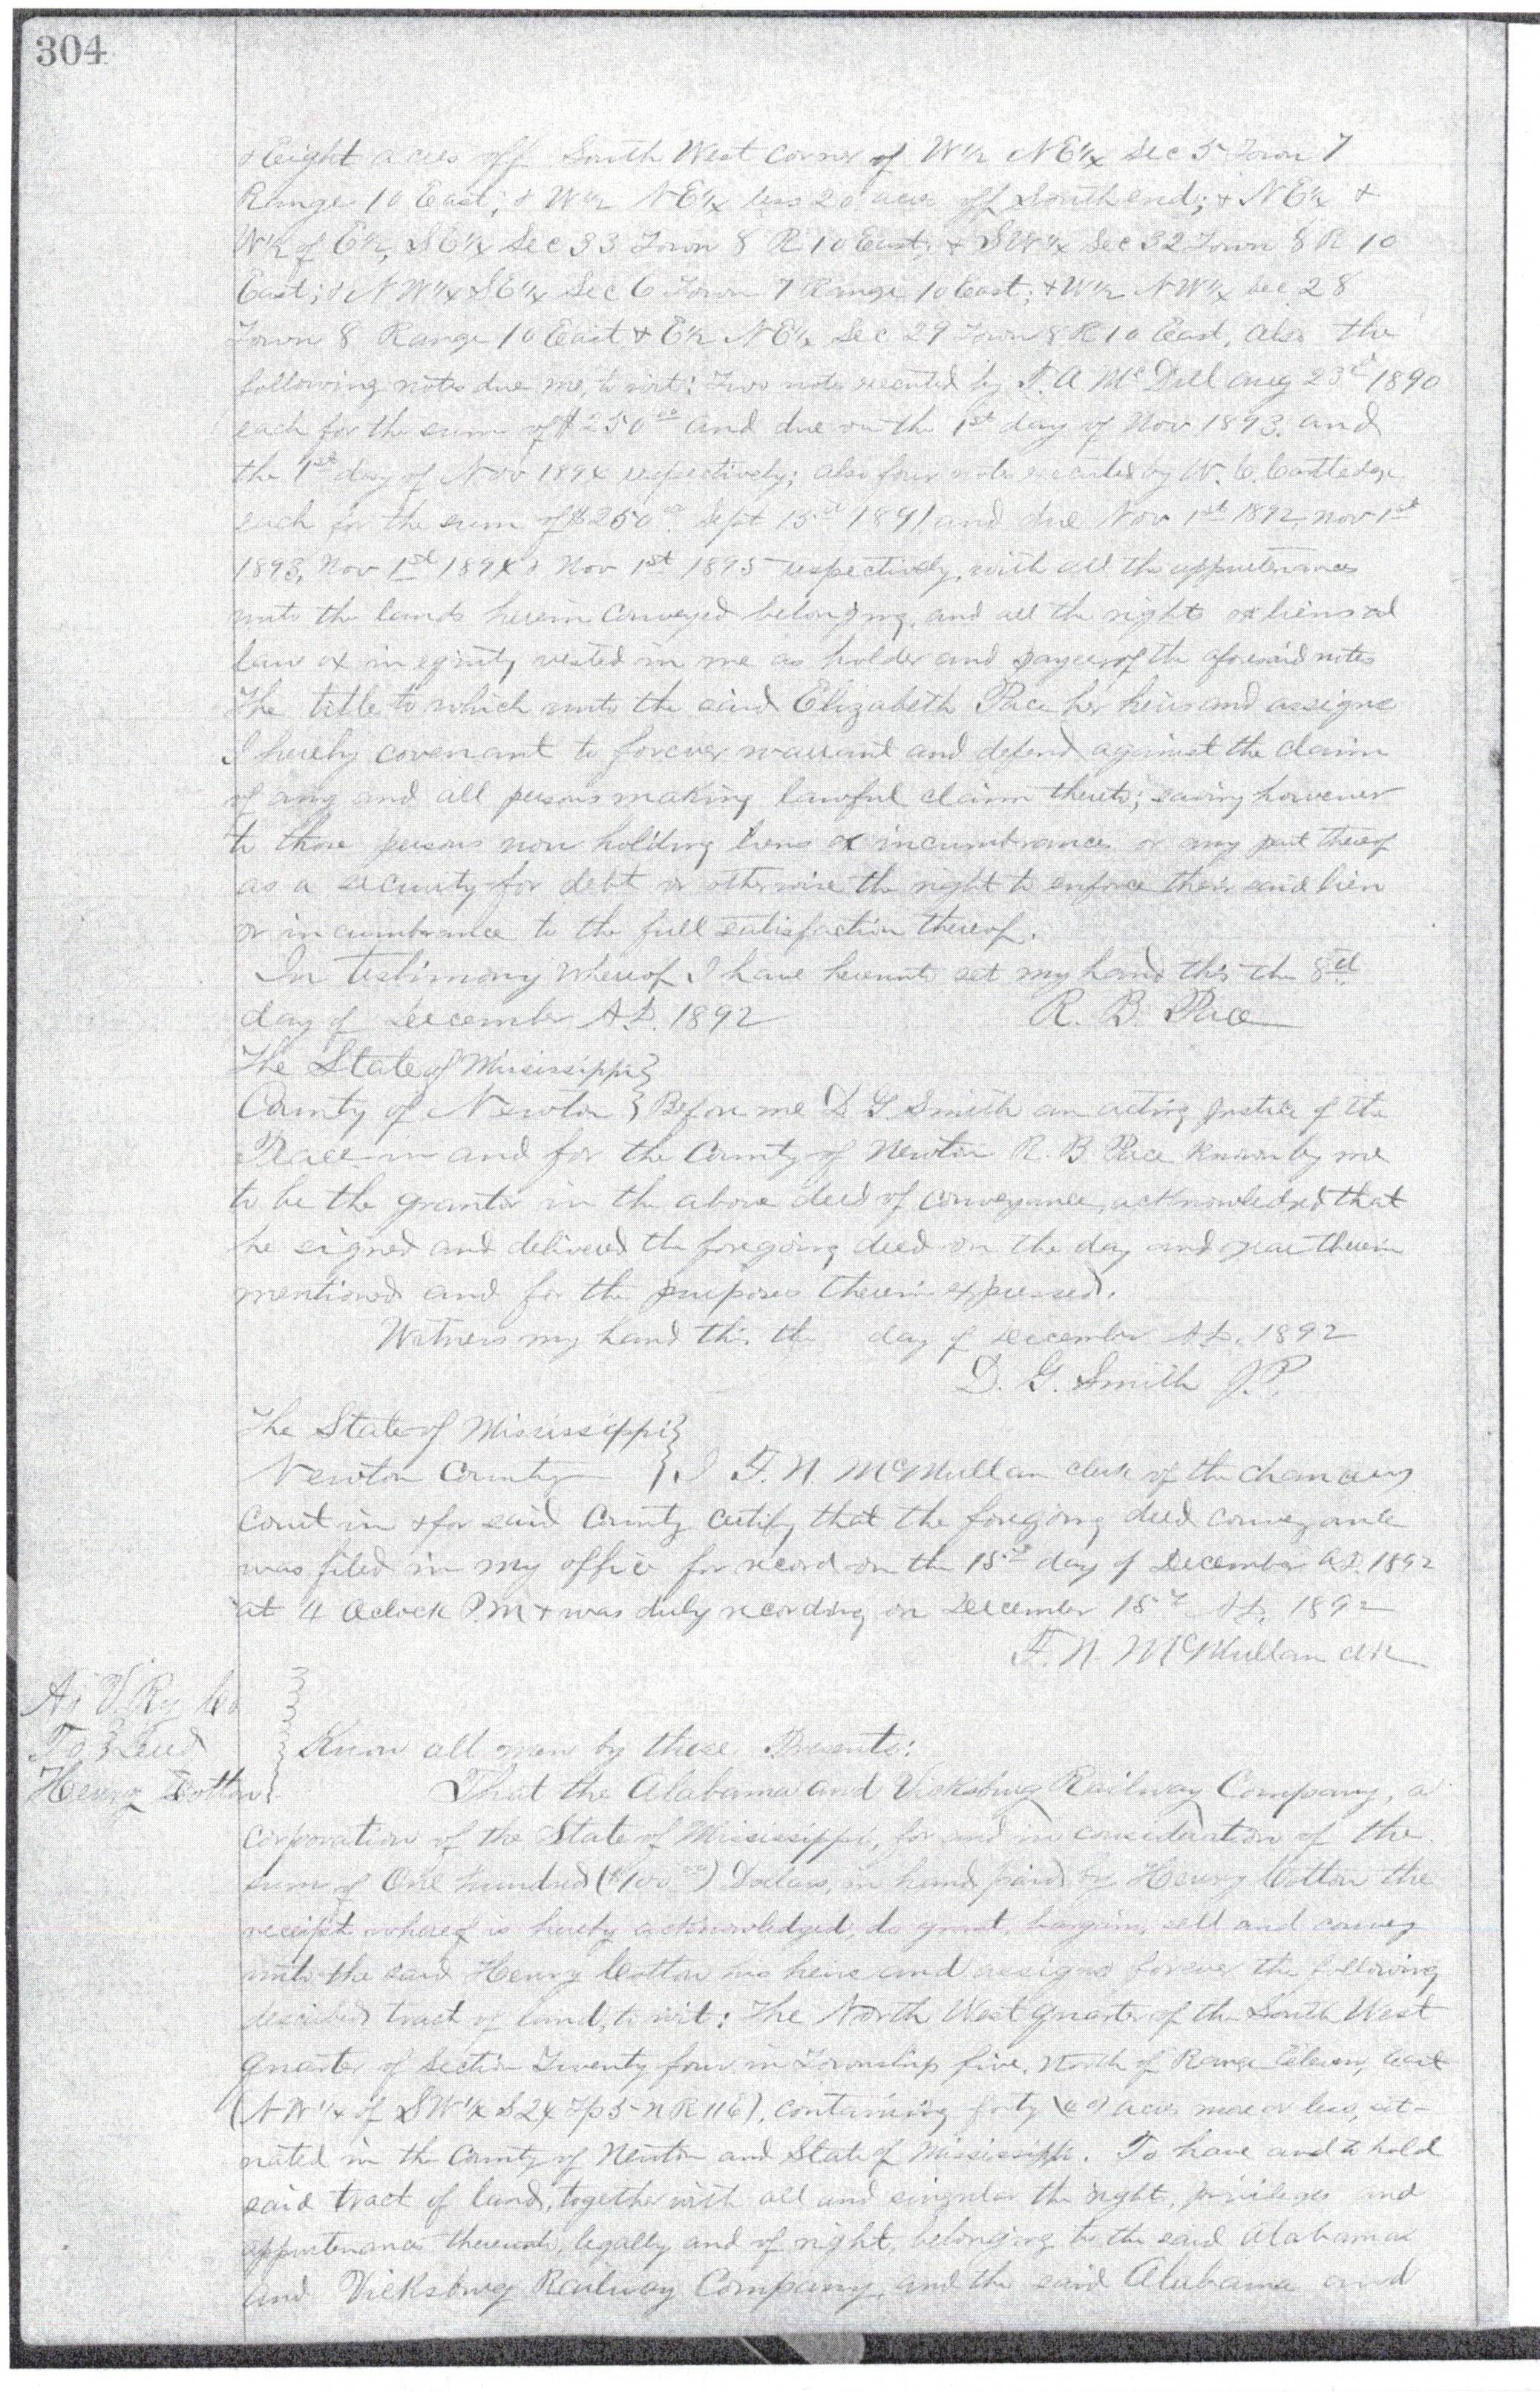 304
& Eight acres off South West Corner of W½ NE¼ Sec 5 Town 7
Range 10 East; & W½ NE¼ less 20 acres off South end; & NE¼ &
W½ of E½, SE¼ Sec 33 Town 8 R 10 East; & SW¼ Sec 32 Town 8 R 10
East; & NW¼ SE¼ Sec 6 Town 7 Range 10 East; & W½ NW¼ Sec 28
Town 8 Range 10 East & E½ NE¼ Sec 29 Town 8 R 10 East, also the
following notes due me, to wit: Two notes executed by A McDill Aug 23d 1890
each for the sum of $250.00 and due on the 1st day of Nov 1893, and
the 1st day of Nov 1894 respectively; also four notes executed by W. C.
each for the sum of $250.00 Sept 15 1891 and due Nov 1st 1892, Nov 1st
1893, Nov 1st 1894 & Nov 1st 1895 respectively, with all the appurtenances
unto the lands herein conveyed belonging, and all the rights or liens at
law or in equity vested in me as holder and payee of the aforesaid notes
The title to which unto the said Elizabeth Pace her heirs and assigns
I hereby covenant to forever warrant and defend against the claim
of any and all persons making lawful claim thereto; saving however
to those persons now holding liens or incumbrances or any part thereof
as a security for debt or otherwise the right to enforce their said lien
or incumbrance to the full satisfaction thereof.
In testimony Whereof I have hereunto set my hand this the 8
day of December A.D. 1892 R. B. Pace
The State of Mississippi }
County of Newton } Before me D G Smith an acting Justice of the
Peace in and for the County of Newton R. B Pace known by me
to be the grantor in the above deed of conveyance, acknowledged that
he signed and delivered the foregoing deed on the day and year therein
mentioned and for the purposes therein expressed.
Witness my hand this the day of December A.D. 1892
D. G. Smith J.P.
The State of Mississippi }
Newton County } I F. N. McMullan clerk of the chancery
Court in & for said County certify that the foregoing deed conveyance
was filed in my office for record on the 15 day of December A.D. 1892
at 4 Oclock P.M & was duly recording on December 15 A.D. 1892
F. N. McMullan clk
A & V. Ry Co }
To } Deed } Know all men by these Presents:
Henry Cotton } That the Alabama and Vicksburg Railway Company, a
corporation of the State of Mississippi, for and in consideration of the
sum of One hundred ($100.00) Dollars, in hand paid by Henry Cotton the
receipt whereof is hereby acknowledged, do grant, bargain, sell and convey
unto the said Henry Cotton his heirs and assigns forever the following
described tract of land, to wit: The North West quarter of the South West
quarter of Section Twenty four in Township five, North of Range Eleven, East
(NW¼ of SW¼ S 24 Tp 5 N R 11 E), containing forty (40) acres more or less, sit-
uated in the County of Newton and State of Mississippi. To have and to hold
said tract of land, together with all and singular the right, privileges and
appurtenances thereunto, legally and of right, belonging to the said Alabama
and Vicksburg Railway Company, and the said Alabama and